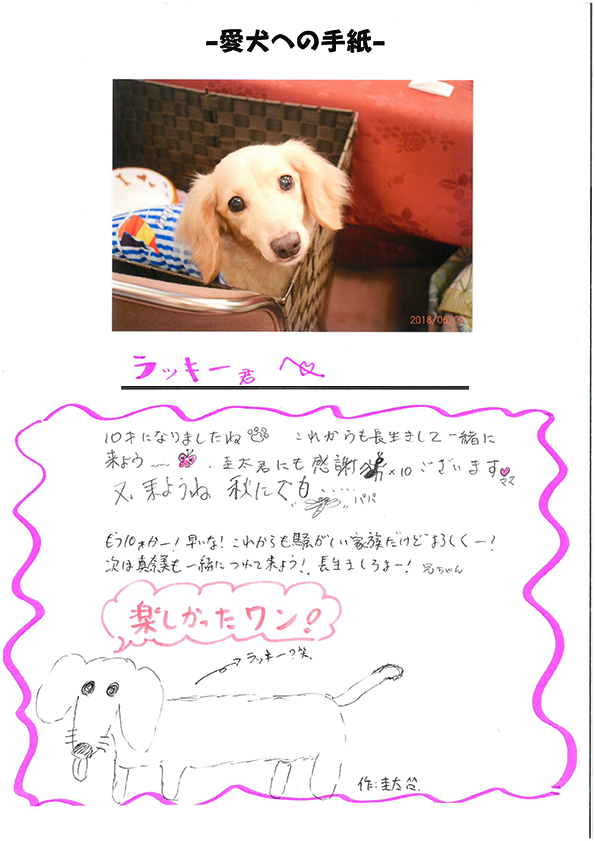 -愛犬への手紙-
2018/06/09
ラッキー君 へ
10才になりましたね これからも長生きして一緒に
来よう〜 . 圭太君にも感謝 ×10 ございます ママ
又、来ようね 秋にでも…… パパ
もう10才かー!早いな!これからも騒がしい家族だけどよろしくー!
次は真奈美も一緒につれて来よう!長生きしろよー! 兄ちゃん
楽しかったワン!
→ラッキー?笑
作:圭太